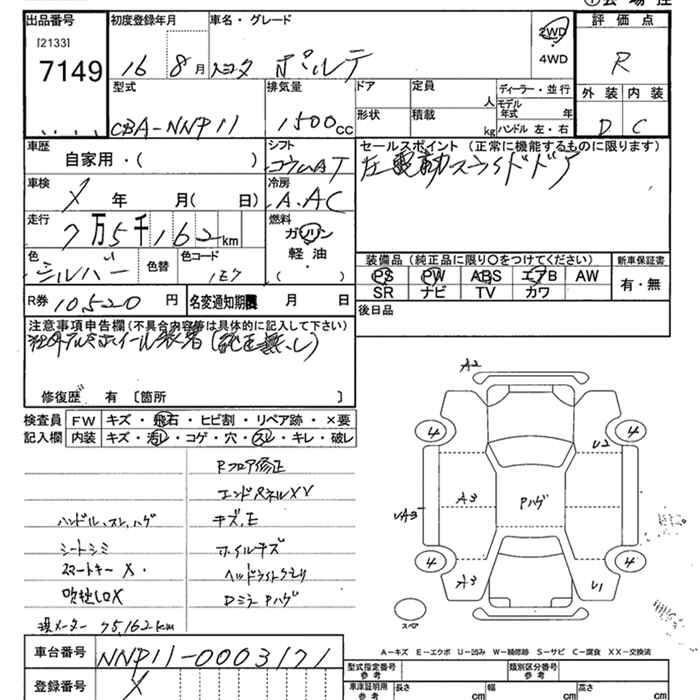 出品番号 初度登録年月 車名・グレード 評価点
[2133]
7149 16 8月 トヨタ ポルテ 2WD 4WD R
型式 排気量 ドア 定員 人 ディーラー・並行 外装 内装
CBA-NNP11 1500cc 形状 積載 kg モデル年式 年 ハンドル 左・右 D C
車歴 自家用・( ) シフト コラムAT セールスポイント (正常に機能するものに限ります)
左電動スライドドア
車検 X 年 月( 日) 冷房 A.AC
走行 7万5千162km 燃料 ガソリン 軽油 ( )
色 シルバー 色替 色コード 1E7
装備品 (純正品に限り○をつけてください) 新車保証書
PS PW ABS エアB AW 有・無
SR ナビ TV カワ
R券 10520 円 名変通知期限 月 日 後日品
注意事項申告欄(不具合内容等は具体的に記入して下さい)
社外アルミホイール装着(純正無し)
修復歴 有 〔箇所 〕
検査員 FW キズ・飛石・ヒビ割・リペア跡・×要
記入欄 内装 キズ・汚レ・コゲ・穴・スレ・キレ・破レ
Rフロア修正
エンドパネルXV
ハンドル、スレ、ハゲ キズ,E
シートシミ ホイルキズ
スマートキーX. ヘッドライトクモリ
DミラPハゲ
現メーター 75,162km
A2
4 4
U2
A3 Pハゲ
4 4
A3 U1
スペア
A-キズ E-エクボ U-凹み W-補修跡 S-サビ C-腐食 XX-交換済
車台番号 NNP11-0003171 型式指定番号 参考 類別区分番号 参考
登録番号 X 車庫証明用 参考 長さ cm 幅 cm 高さ cm